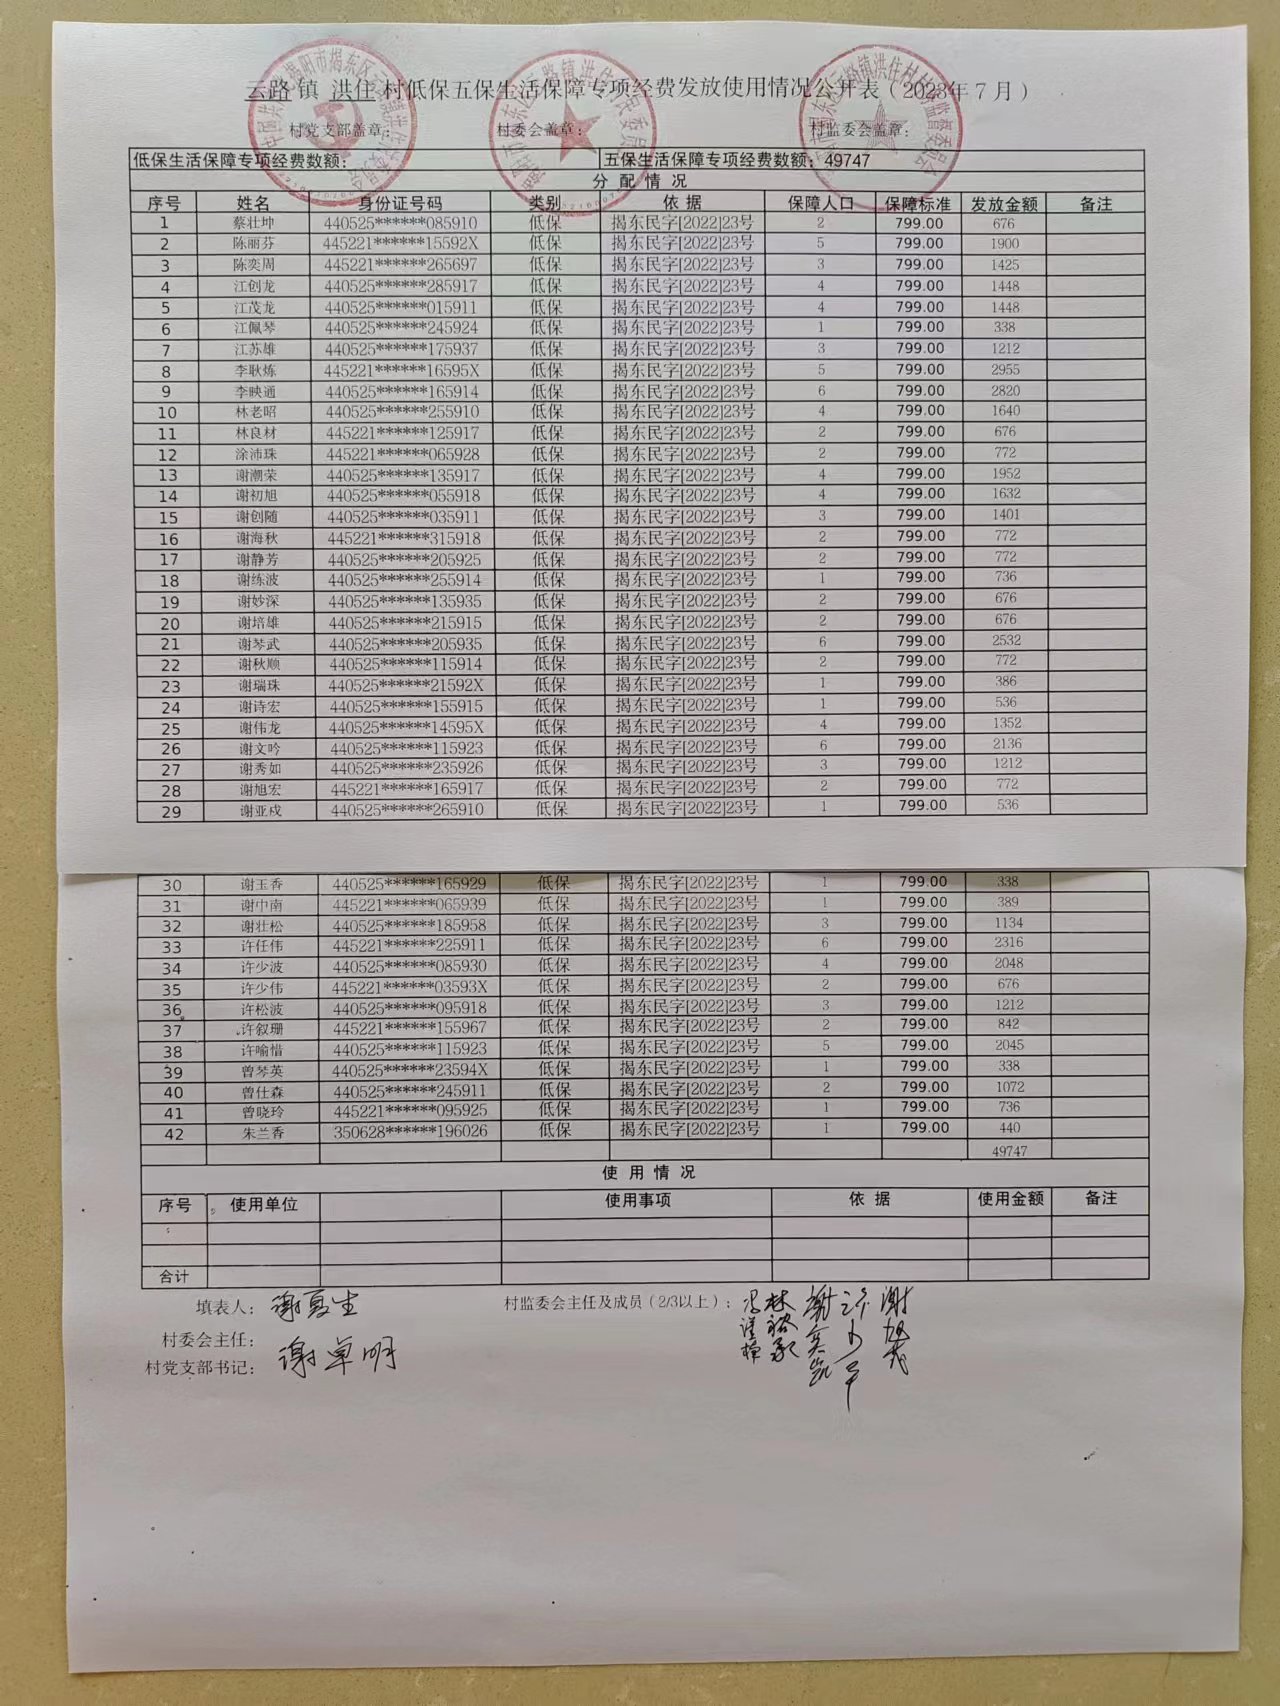 云路镇 洪住 村低保五保生活保障专项经费发放使用情况公开表（2023年7月）
村党支部盖章： 村委会盖章： 村监委会盖章：
低保生活保障专项经费数额： 五保生活保障专项经费数额：49747
分 配 情 况
序号 姓名 身份证号码 类别 依 据 保障人口 保障标准 发放金额 备注
1 蔡壮坤 440525******085910 低保 揭东民字[2022]23号 2 799.00 676
2 陈丽芬 445221******15592X 低保 揭东民字[2022]23号 5 799.00 1900
3 陈奕周 445221******265697 低保 揭东民字[2022]23号 3 799.00 1425
4 江创龙 440525******285917 低保 揭东民字[2022]23号 4 799.00 1448
5 江茂龙 440525******015911 低保 揭东民字[2022]23号 4 799.00 1448
6 江佩琴 440525******245924 低保 揭东民字[2022]23号 1 799.00 338
7 江苏雄 440525******175937 低保 揭东民字[2022]23号 3 799.00 1212
8 李耿炼 445221******16595X 低保 揭东民字[2022]23号 5 799.00 2955
9 李映通 440525******165914 低保 揭东民字[2022]23号 6 799.00 2820
10 林老昭 440525******255910 低保 揭东民字[2022]23号 4 799.00 1640
11 林良材 445221******125917 低保 揭东民字[2022]23号 2 799.00 676
12 涂沛珠 445221******065928 低保 揭东民字[2022]23号 2 799.00 772
13 谢潮荣 440525******135917 低保 揭东民字[2022]23号 4 799.00 1952
14 谢初旭 440525******055918 低保 揭东民字[2022]23号 4 799.00 1632
15 谢创随 440525******035911 低保 揭东民字[2022]23号 3 799.00 1401
16 谢海秋 445221******315918 低保 揭东民字[2022]23号 2 799.00 772
17 谢静芳 440525******205925 低保 揭东民字[2022]23号 2 799.00 772
18 谢练波 440525******255914 低保 揭东民字[2022]23号 1 799.00 736
19 谢妙深 440525******135935 低保 揭东民字[2022]23号 2 799.00 676
20 谢培雄 440525******215915 低保 揭东民字[2022]23号 2 799.00 676
21 谢琴武 440525******205935 低保 揭东民字[2022]23号 6 799.00 2532
22 谢秋顺 440525******115914 低保 揭东民字[2022]23号 2 799.00 772
23 谢瑞珠 440525******21592X 低保 揭东民字[2022]23号 1 799.00 386
24 谢诗宏 440525******155915 低保 揭东民字[2022]23号 1 799.00 536
25 谢伟龙 440525******14595X 低保 揭东民字[2022]23号 4 799.00 1352
26 谢文吟 440525******115923 低保 揭东民字[2022]23号 6 799.00 2136
27 谢秀如 440525******235926 低保 揭东民字[2022]23号 3 799.00 1212
28 谢旭宏 445221******165917 低保 揭东民字[2022]23号 2 799.00 772
29 谢亚成 440525******265910 低保 揭东民字[2022]23号 1 799.00 536
30 谢玉香 440525******165929 低保 揭东民字[2022]23号 1 799.00 338
31 谢中南 445221******065939 低保 揭东民字[2022]23号 1 799.00 389
32 谢壮松 440525******185958 低保 揭东民字[2022]23号 3 799.00 1134
33 许任伟 445221******225911 低保 揭东民字[2022]23号 6 799.00 2316
34 许少波 440525******085930 低保 揭东民字[2022]23号 4 799.00 2048
35 许少伟 445221******03593X 低保 揭东民字[2022]23号 2 799.00 676
36 许松波 440525******095918 低保 揭东民字[2022]23号 3 799.00 1212
37 许叙珊 445221******155967 低保 揭东民字[2022]23号 2 799.00 842
38 许喻惜 440525******115923 低保 揭东民字[2022]23号 5 799.00 2045
39 曾琴英 440525******23594X 低保 揭东民字[2022]23号 1 799.00 338
40 曾仕森 440525******245911 低保 揭东民字[2022]23号 2 799.00 1072
41 曾晓玲 445221******095925 低保 揭东民字[2022]23号 1 799.00 736
42 朱兰香 350628******196026 低保 揭东民字[2022]23号 1 799.00 440
49747
使 用 情 况
序号 使用单位 使用事项 依 据 使用金额 备注
合计
填表人：谢夏生 村监委会主任及成员（2/3以上）：
村委会主任：
村党支部书记：谢卓明